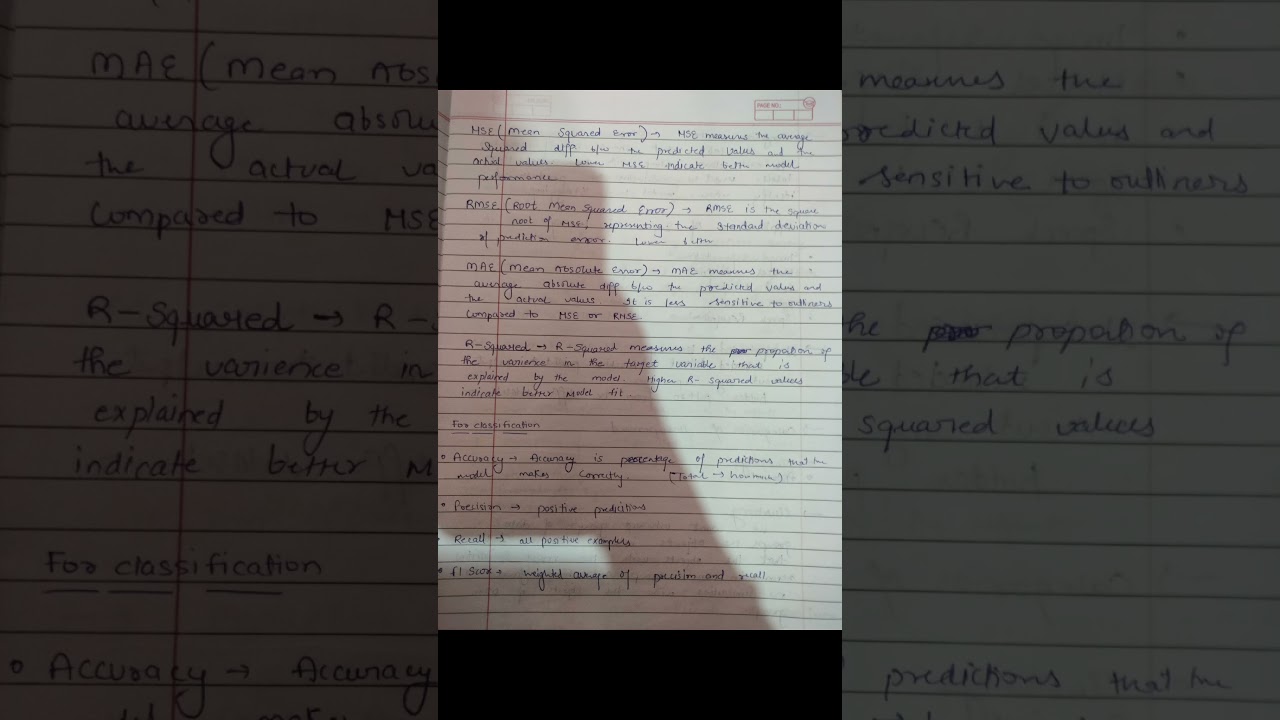 PAGE NO.:
MSE (Mean Squared Error) → MSE measures the average
squared diff b/w the predicted values and the
actual values. Lower MSE indicate better model
performance.
RMSE (Root Mean Squared Error) → RMSE is the square
root of MSE, representing the standard deviation
of prediction error. Lower better
MAE (Mean Absolute Error) → MAE measures the
average absolute diff b/w the predicted values and
the actual values. It is less sensitive to outliners
compared to MSE or RMSE.
R-Squared → R-Squared measures the propation of
the varience in the target variable that is
explained by the model. Higher R-squared values
indicate better Model fit.
For classification
• Accuracy → Accuracy is percentage of predictions that the
model makes correctly. (Total →
• Precision → positive predictions
• Recall → all positive examples
• F1 Score → weighted average of precision and recall